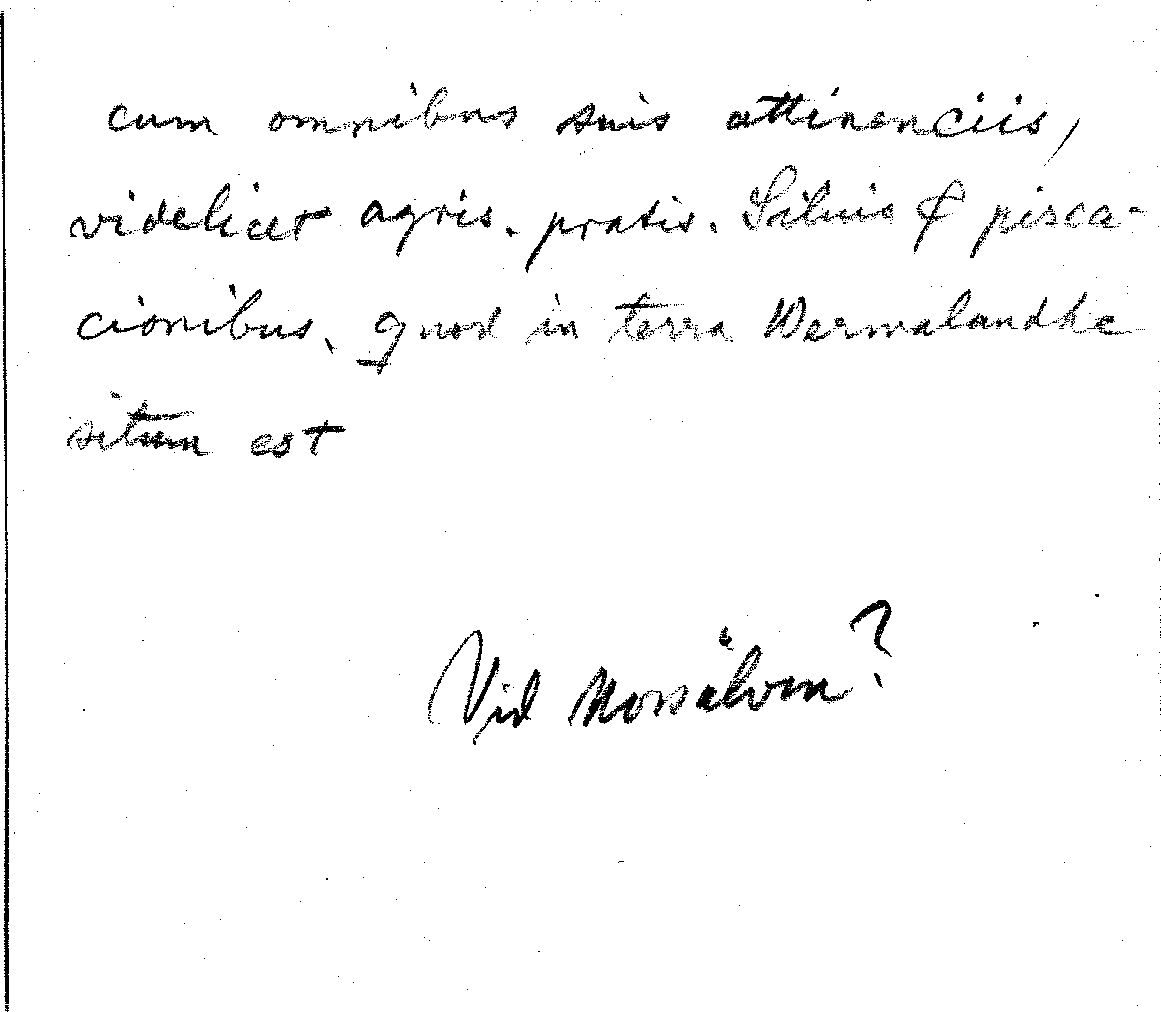 cum omnibus suis attinenciis,
videlicet agris. pratis. Siluis & pisca-
cionibus, quod in terra Wermalandhe
situm est
Vid Norsälven?